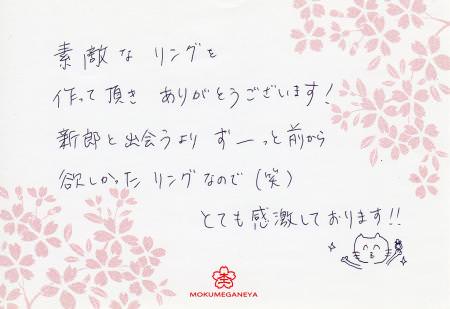 素敵な リングを
作って頂き ありがとうございます!
新郎と出会うより ずーっと前から
欲しかった リングなので (笑)
とても感激しております!!
MOKUMEGANEYA